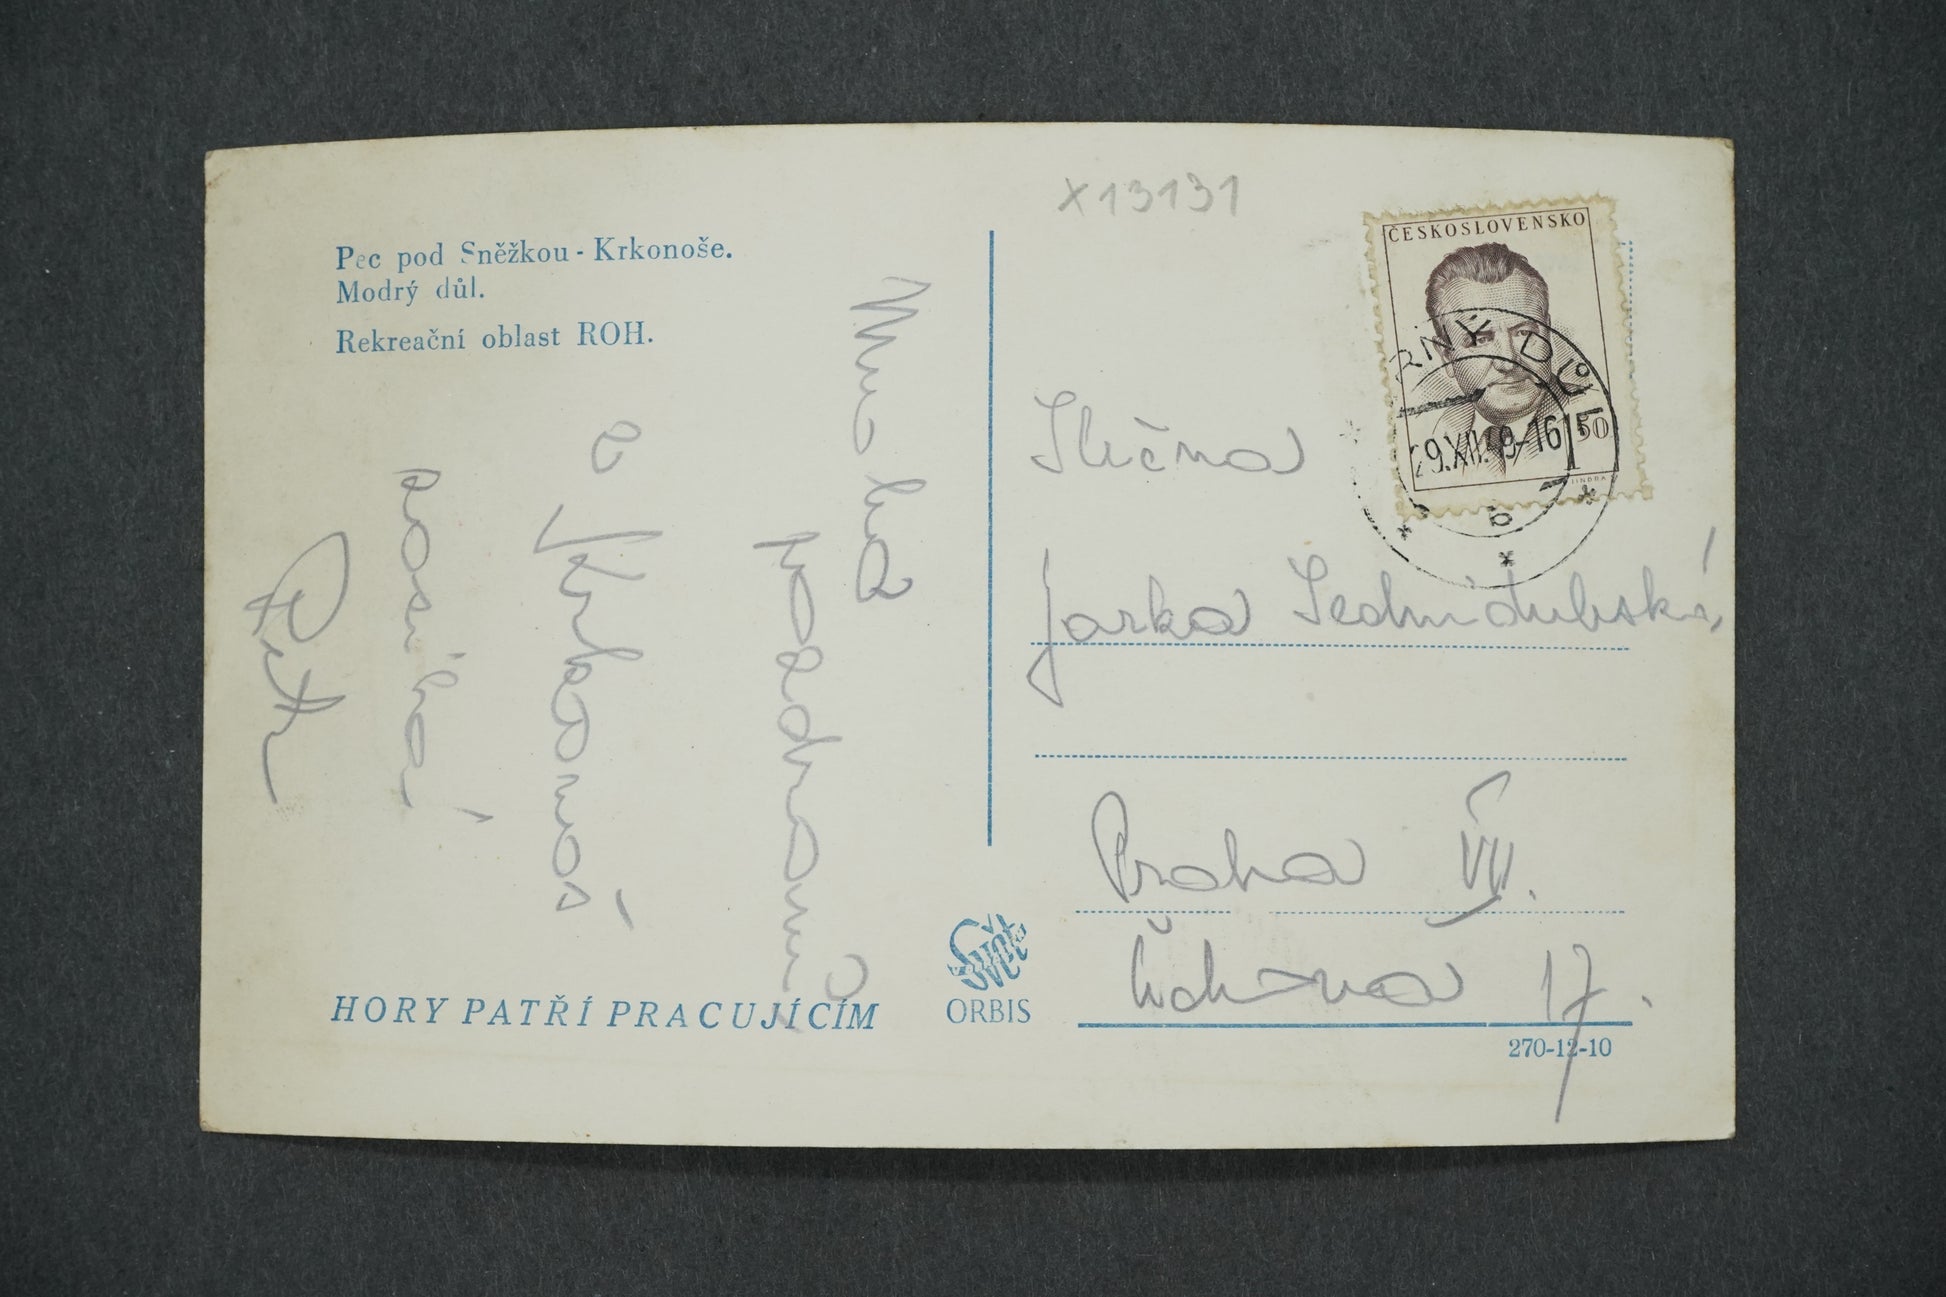 Pec pod Sněžkou - Krkonoše.
Modrý důl.
Rekreační oblast ROH.
Mnoho
pozdravů
z Krkonoš
posílá
Petr
HORY PATŘÍ PRACUJÍCÍM
Svět
ORBIS
x13131
ČESKOSLOVENSKO
1,50
JINDRA
RNÝ DŮL
29.XII.49-16
b
Slečna
Jarka Sedmidubská,
Praha VII.
17.
270-12-10